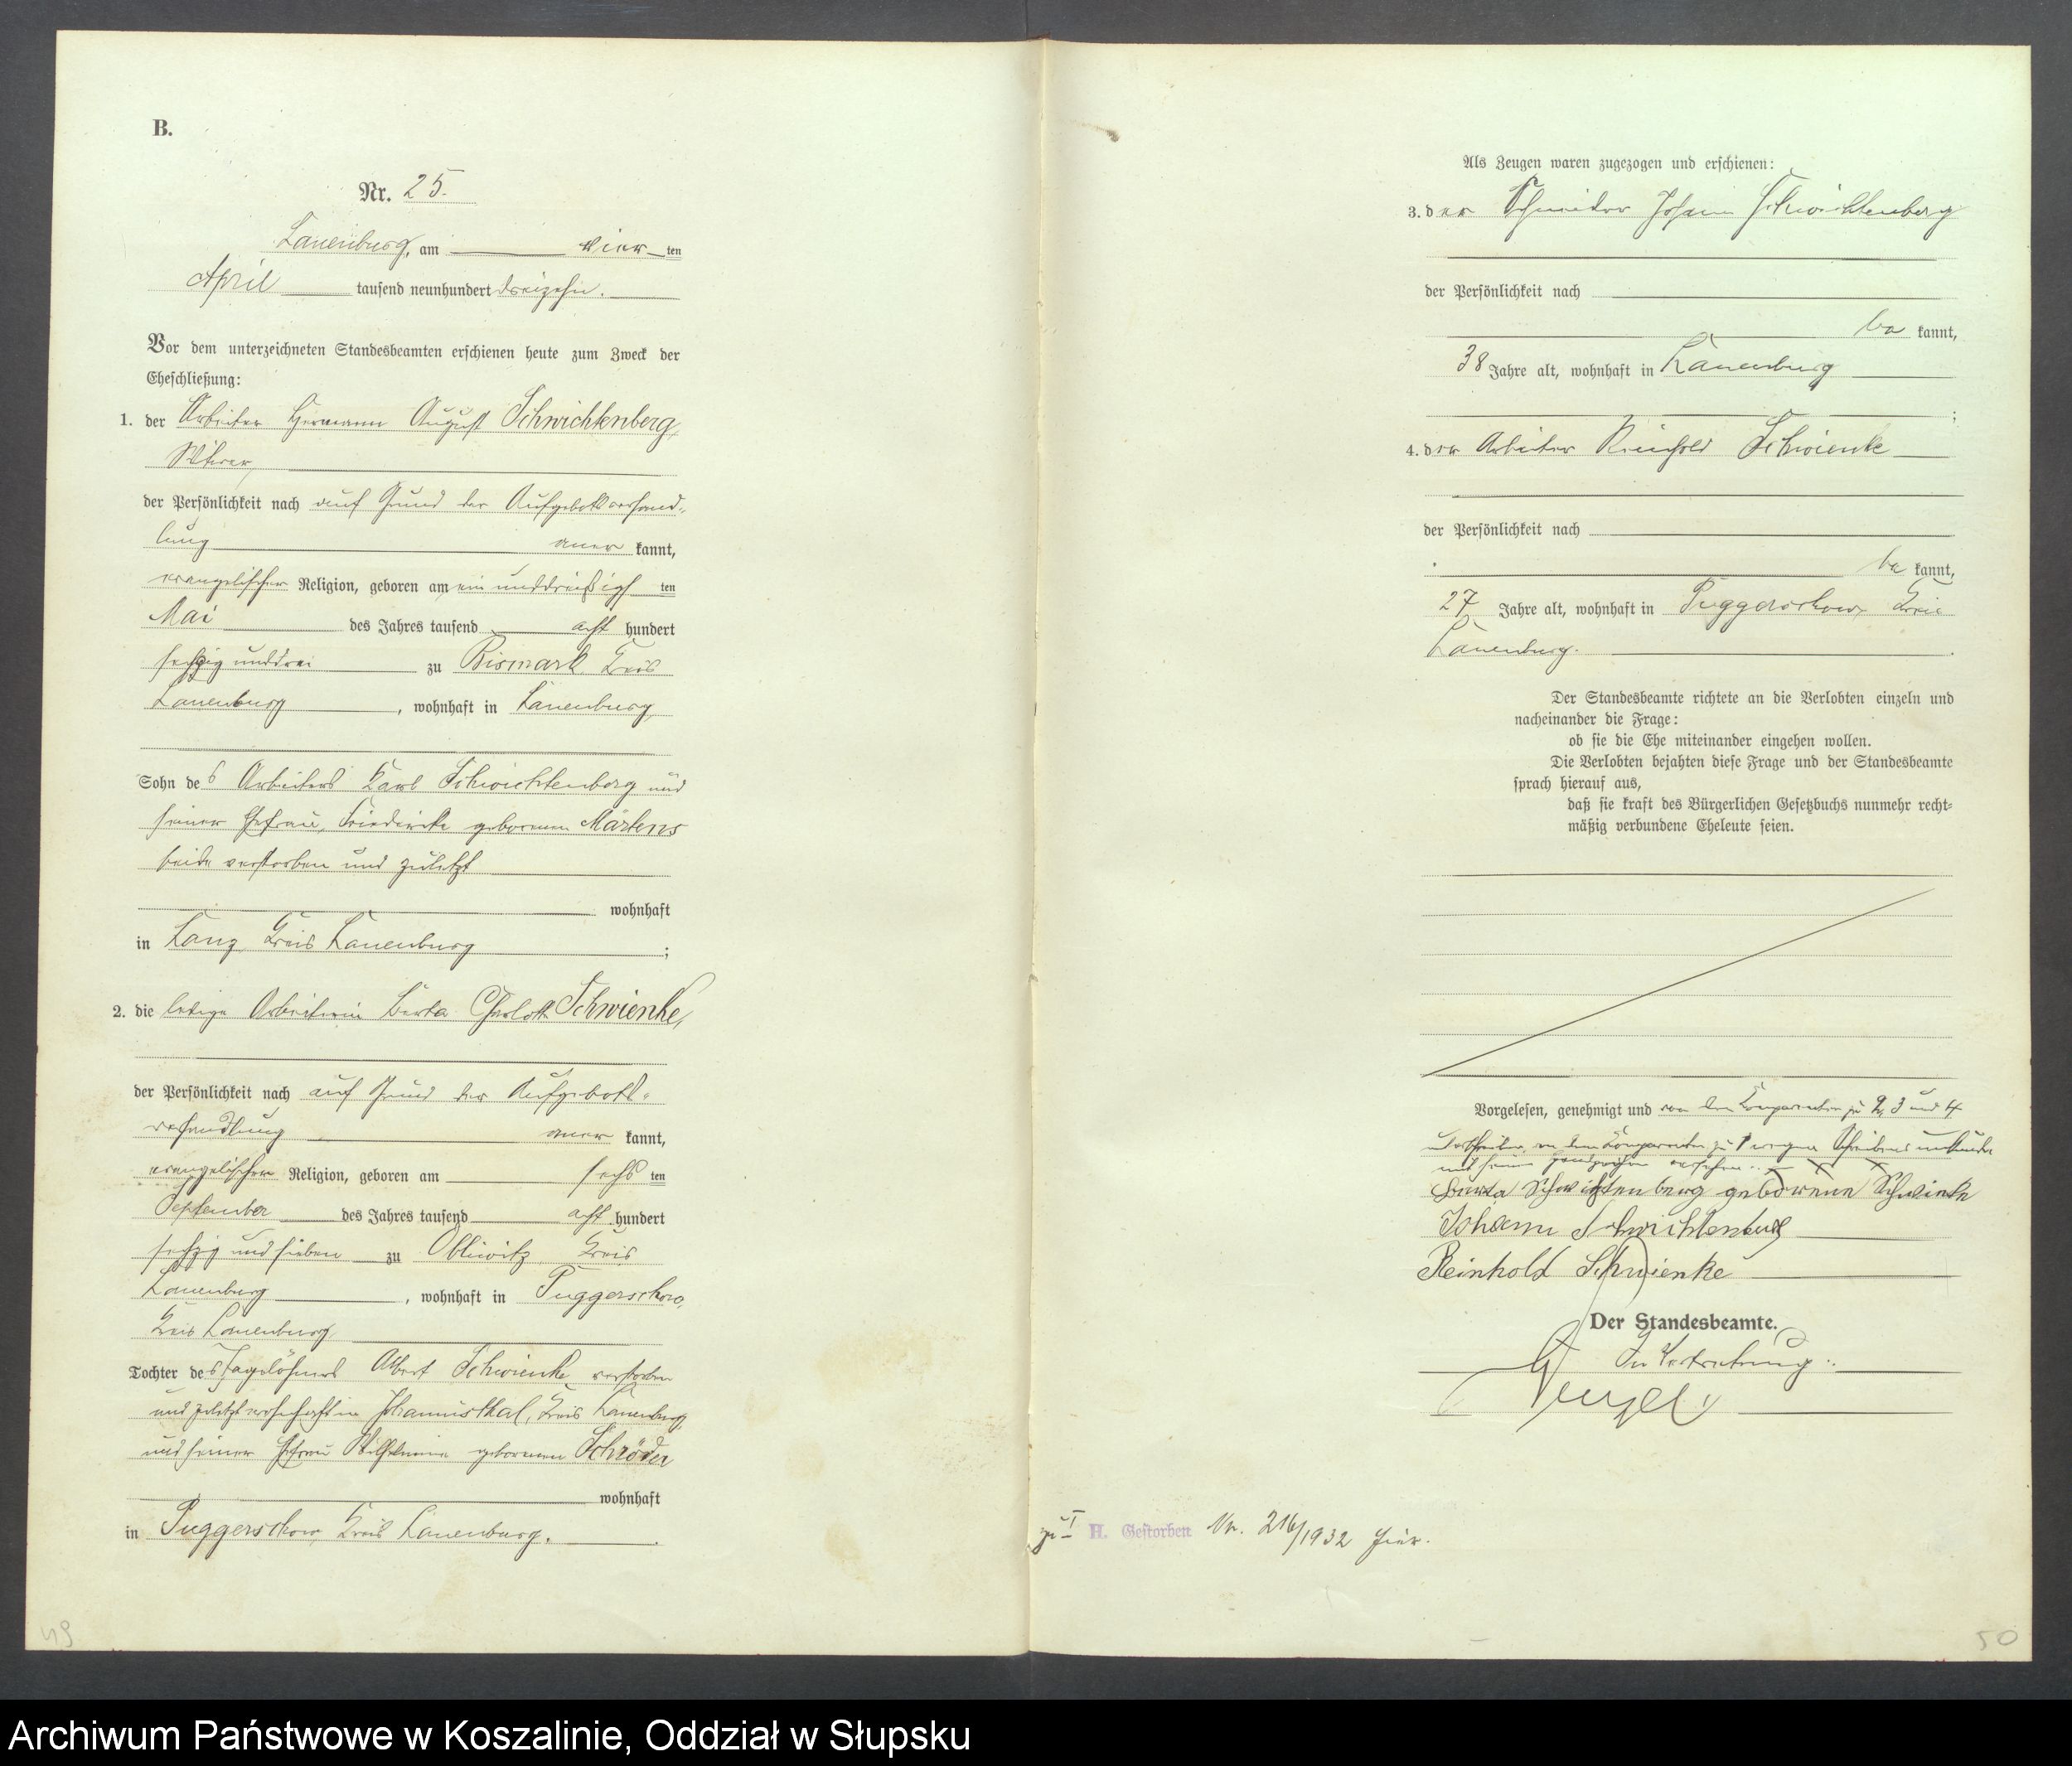 B.
Nr. 25.
Lauenburg, am vier ten
April tausend neunhundert dreizehn.
Vor dem unterzeichneten Standesbeamten erschienen heute zum Zweck der
Eheschließung:
1. der Arbeiter Hermann August Schwichtenberg,
Witwer,
der Persönlichkeit nach auf Grund der Aufgebotsverhand-
lung aner kannt,
evangelischer Religion, geboren am einunddreißigs ten
Mai des Jahres tausend acht hundert
sechzig und drei zu Bismark Kreis
Lauenburg, wohnhaft in Lauenburg
Sohn des Arbeiters Karl Schwichtenberg und
seiner Ehefrau, Friederike geborenen Märtens
beide verstorben und zuletzt
wohnhaft
in Lanz, Kreis Lauenburg;
2. die ledige Arbeiterin Berta Charlotte Schwienke,
der Persönlichkeit nach auf Grund der Aufgebots-
verhandlung aner kannt,
evangelischer Religion, geboren am sechs ten
September des Jahres tausend acht hundert
sechzig und sieben zu Obliwitz, Kreis
Lauenburg, wohnhaft in Puggerschow,
Kreis Lauenburg
Tochter des Tagelöhners Albert Schwienke, verstorben
und zuletzt wohnhaft in Johannisthal, Kreis Lauenburg
und seiner Ehefrau Wilhelmine geborenen Schröder
wohnhaft
in Puggerschow, Kreis Lauenburg.
Als Zeugen waren zugezogen und erschienen:
3. der Schneider Johann Schwichtenberg
der Persönlichkeit nach
be kannt,
38 Jahre alt, wohnhaft in Lauenburg
;
4. der Arbeiter Reinhold Schwienke
der Persönlichkeit nach
be kannt,
27 Jahre alt, wohnhaft in Puggerschow, Kreis
Lauenburg.
Der Standesbeamte richtete an die Verlobten einzeln und
nacheinander die Frage:
ob sie die Ehe miteinander eingehen wollen.
Die Verlobten bejahten diese Frage und der Standesbeamte
sprach hierauf aus,
daß sie kraft des Bürgerlichen Gesetzbuchs nunmehr recht-
mäßig verbundene Eheleute seien.
Vorgelesen, genehmigt und von den Komparenten zu 2, 3 und 4
unterschrieben, von dem Komparenten zu 1 wegen Schreibens unkunde
mit seinem Handzeichen versehen. x x x
Berta Schwichtenberg geborene Schwienke
Johann Schwichtenberg
Reinhold Schwienke
Der Standesbeamte.
In Vertretung:
zu I H. Gestorben Nr. 216/1932 hier.
49
50
Archiwum Państwowe w Koszalinie, Oddział w Słupsku